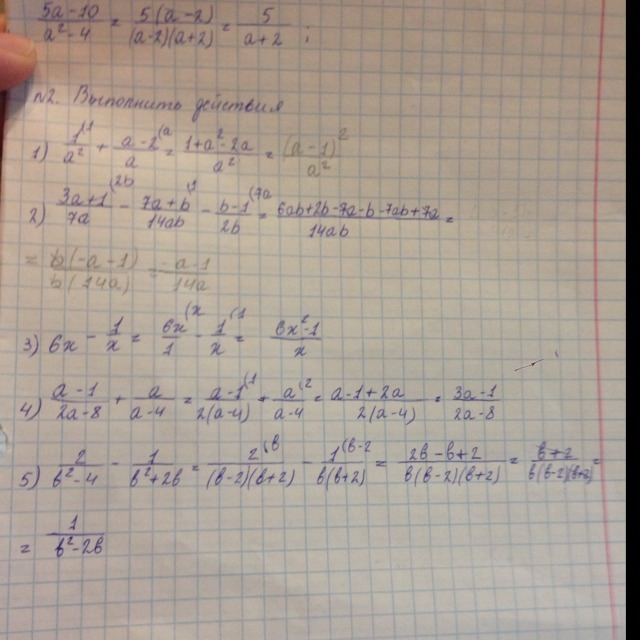 (5a-10)/(a²-4) = 5(a-2)/((a-2)(a+2)) = 5/(a+2) ;
№2. Выполнить действия
1) 1/a² + (a-2)/a = (1+a²-2a)/a² = (a-1)²/a²
2) (3a+1)/7a - (7a+b)/14ab - (b-1)/2b = (6ab+2b-7a-b-7ab+7a)/14ab =
= b(-a-1)/b(14a) = (-a-1)/14a
3) 6x - 1/x = 6x/1 - 1/x = (6x²-1)/x
4) (a-1)/(2a-8) + a/(a-4) = (a-1)/2(a-4) + a/(a-4) = (a-1+2a)/2(a-4) = (3a-1)/(2a-8)
5) 2/(b²-4) - 1/(b²+2b) = 2/((b-2)(b+2)) - 1/(b(b+2)) = (2b-b+2)/(b(b-2)(b+2)) = (b+2)/(b(b-2)(b+2)) =
= 1/(b²-2b)